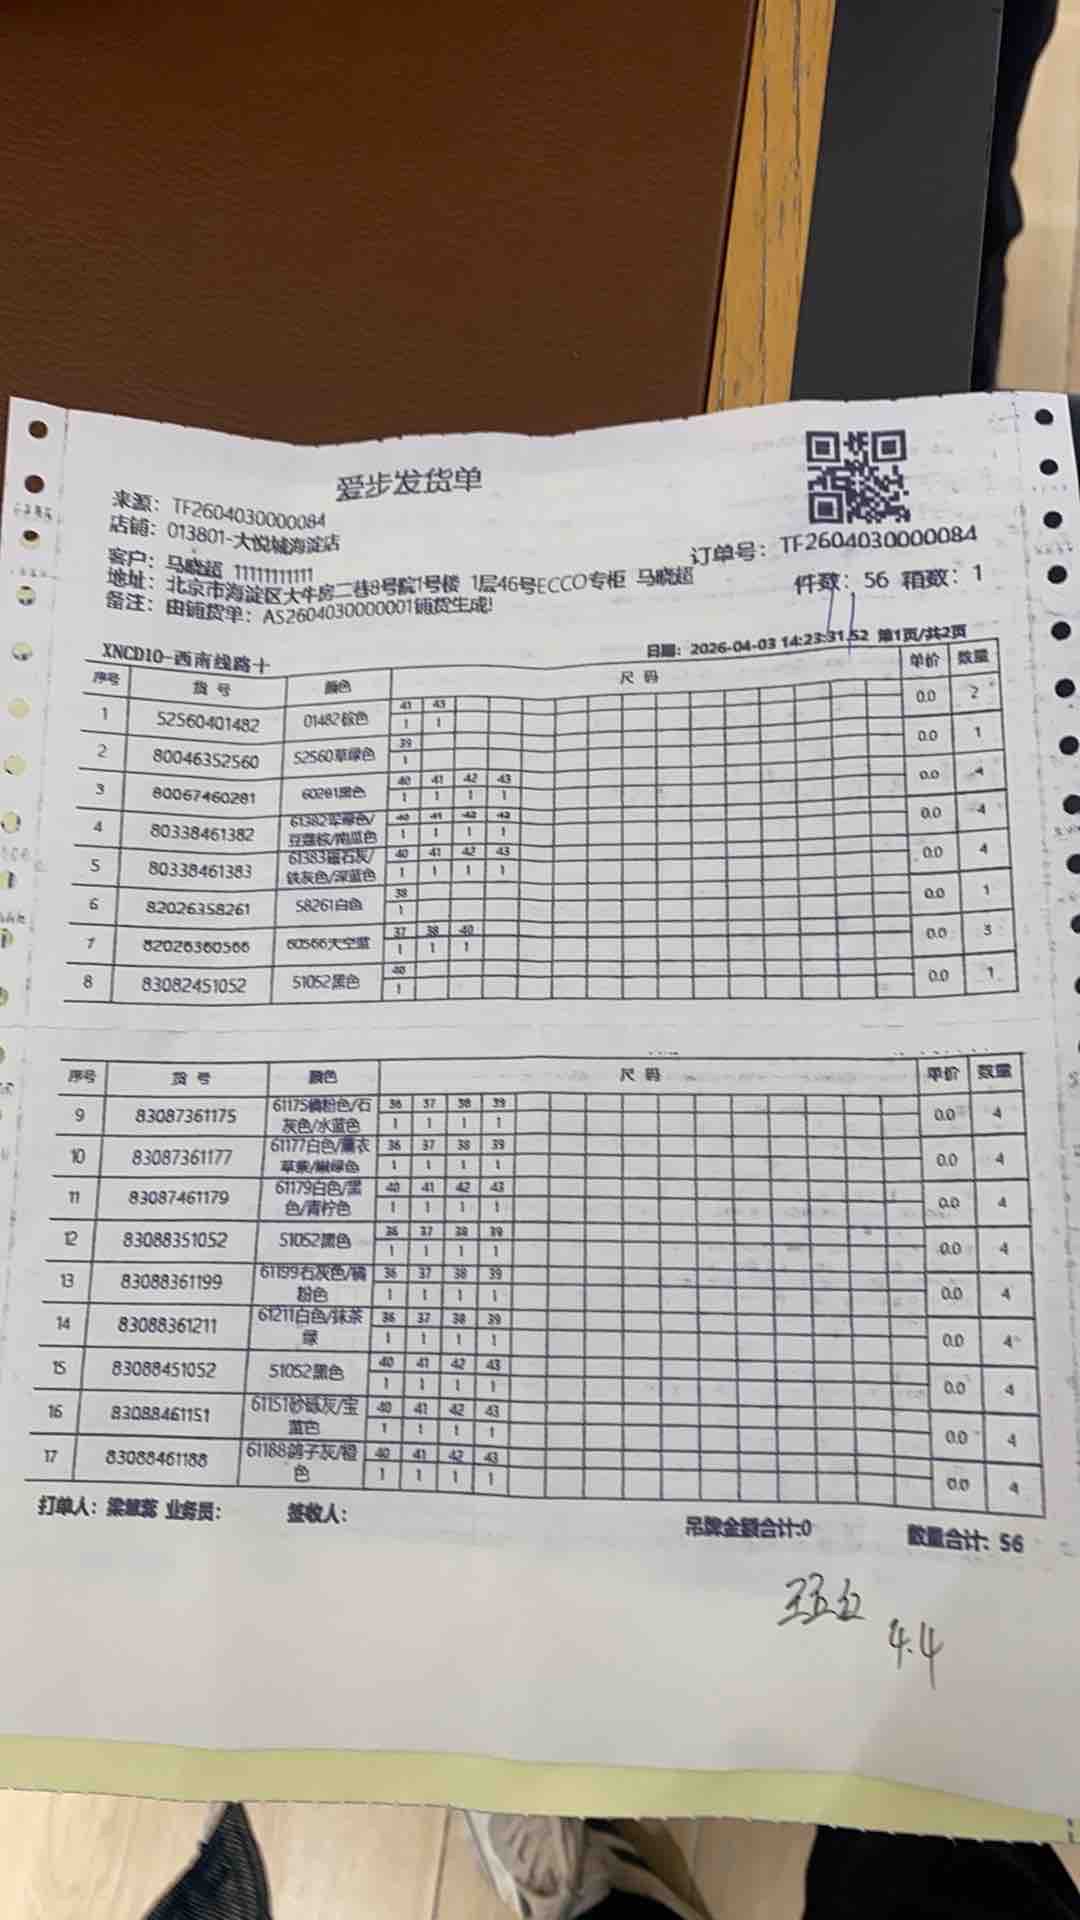 爱步发货单
来源: TF2604030000084
店铺: 013801-大悦城海淀店
订单号: TF2604030000084
客户: 马晓超 11111111111
地址: 北京市海淀区大牛房二巷8号院1号楼 1层46号ECCO专柜 马晓超
件数: 56 箱数: 1
备注: 由铺货单: AS2604030000001铺货生成!
XNCD10-西南线路十
日期: 2026-04-03 14:23:31.52 第1页/共2页
序号 货 号 颜色 尺 码 单价 数量
1 52560401482 01482棕色 41 43 0.0 2
1 1
2 80046352560 52560草绿色 39 0.0 1
1
3 80067460281 60281黑色 40 41 42 43 0.0 4
1 1 1 1
4 80338461382 40 41 42 43 0.0 4
1 1 1 1
5 80338461383 61383磁石灰/ 40 41 42 43 0.0 4
铁灰色/深蓝色 1 1 1 1
6 82026358261 58261白色 38 0.0 1
1
7 82026360566 60566天空蓝 37 38 40 0.0 3
1 1 1
8 83082451052 51052黑色 40 0.0 1
1
序号 货 号 颜色 尺 码 单价 数量
9 83087361175 61175橘粉色/石 36 37 38 39 0.0 4
灰色/水蓝色 1 1 1 1
10 83087361177 61177白色/薰衣 36 37 38 39 0.0 4
1 1 1 1
11 83087461179 61179白色/黑 40 41 42 43 0.0 4
色/青柠色 1 1 1 1
12 83088351052 51052黑色 36 37 38 39 0.0 4
1 1 1 1
13 83088361199 61199石灰色/橘 36 37 38 39 0.0 4
粉色 1 1 1 1
14 83088361211 61211白色/抹茶 36 37 38 39 0.0 4
绿 1 1 1 1
15 83088451052 51052黑色 40 41 42 43 0.0 4
1 1 1 1
16 83088461151 61151砂砾灰/宝 40 41 42 43 0.0 4
蓝色 1 1 1 1
17 83088461188 61188鸽子灰/橙 40 41 42 43 0.0 4
色 1 1 1 1
打单人: 梁慧蕊 业务员: 签收人: 吊牌金额合计:0 数量合计: 56
4.4